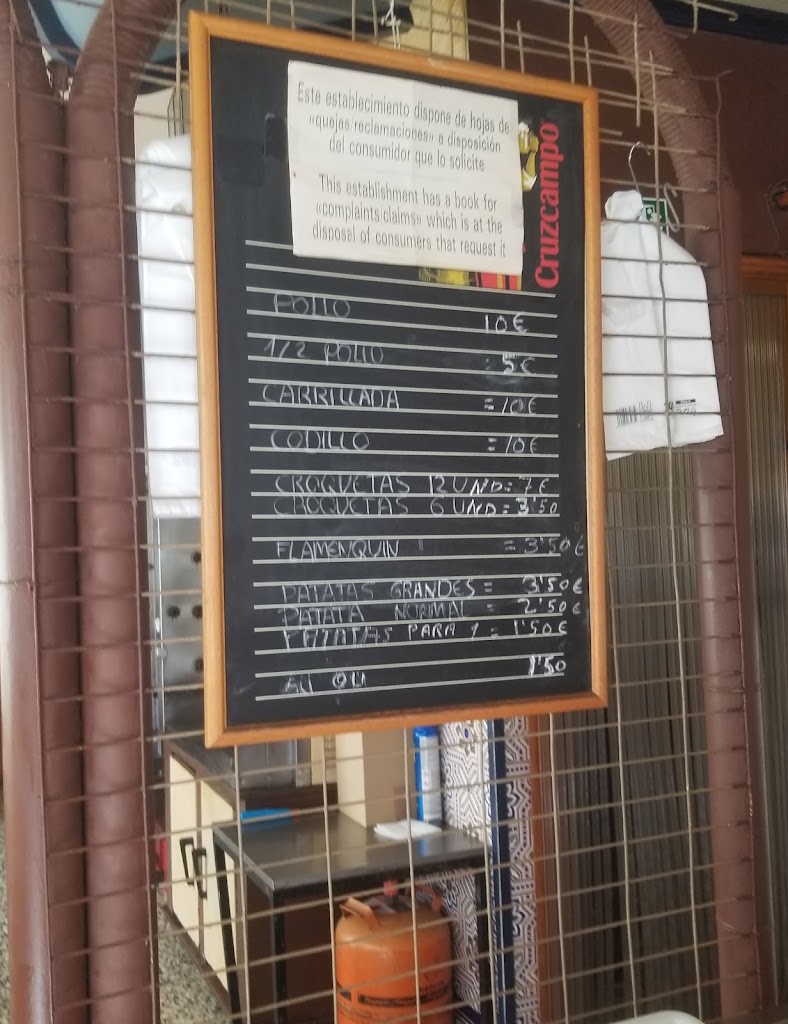 Este establecimiento dispone de hojas de
«quejas/reclamaciones» a disposición
del consumidor que lo solicite
This establishment has a book for
«complaints/claims» which is at the
disposal of consumers that request it
Cruzcampo
POLLO 10€
1/2 POLLO = 5€
CARRILLADA = 10€
CODILLO = 10€
CROQUETAS 12 UND = 7€
CROQUETAS 6 UND = 3'50
FLAMENQUIN = 3'50€
PATATAS GRANDES = 3'50€
PATATA NORMAL = 2'50€
PATATAS PARA 1 = 1'50€
1'50